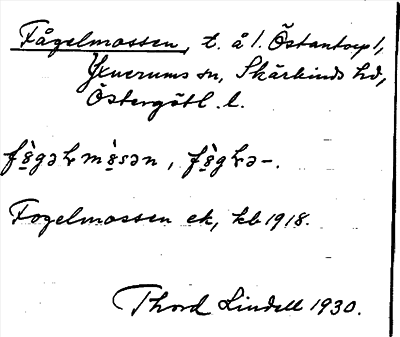 Fågelmossen, t. å 1. Östantorp 1,
Yxnerums sn, Skärkinds hd,
Östergötl. l.
Fogelmossen ek, kb 1918.
Thord Lindell 1930.